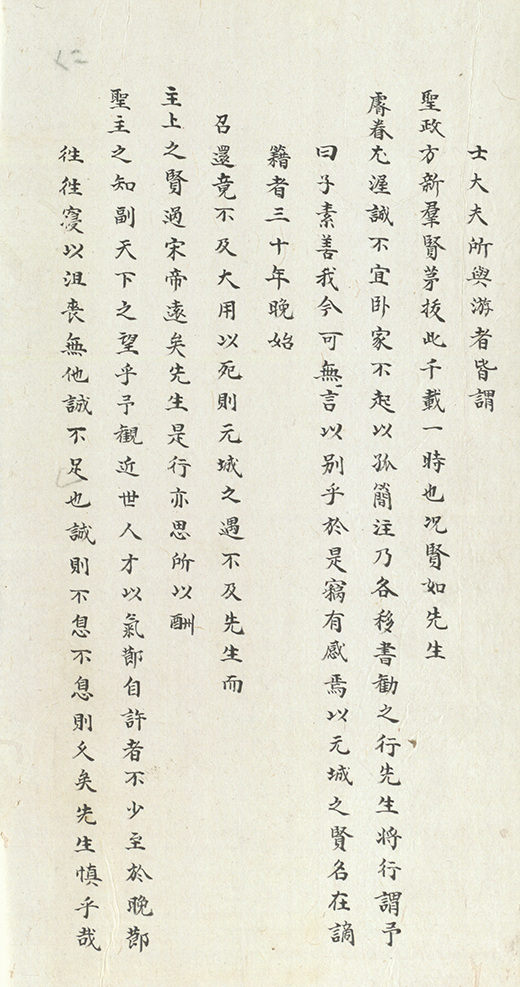 士大夫所與游者皆謂
聖政方新羣賢茅拔此千載一時也况賢如先生
膺眷尤渥誠不宜卧家不起以孤簡注乃各移書勸之行先生將行謂予
曰子素善我今可無言以别乎於是竊有感焉以元城之賢名在謫
籍者三十年晚始
召還竟不及大用以死則元城之遇不及先生而
主上之賢過宋帝遠矣先生是行亦思所以酬
聖主之知副天下之望乎予觀近世人才以氣節自許者不少至於晚節
往往寖以沮喪無他誠不足也誠則不息不息則久矣先生慎乎哉